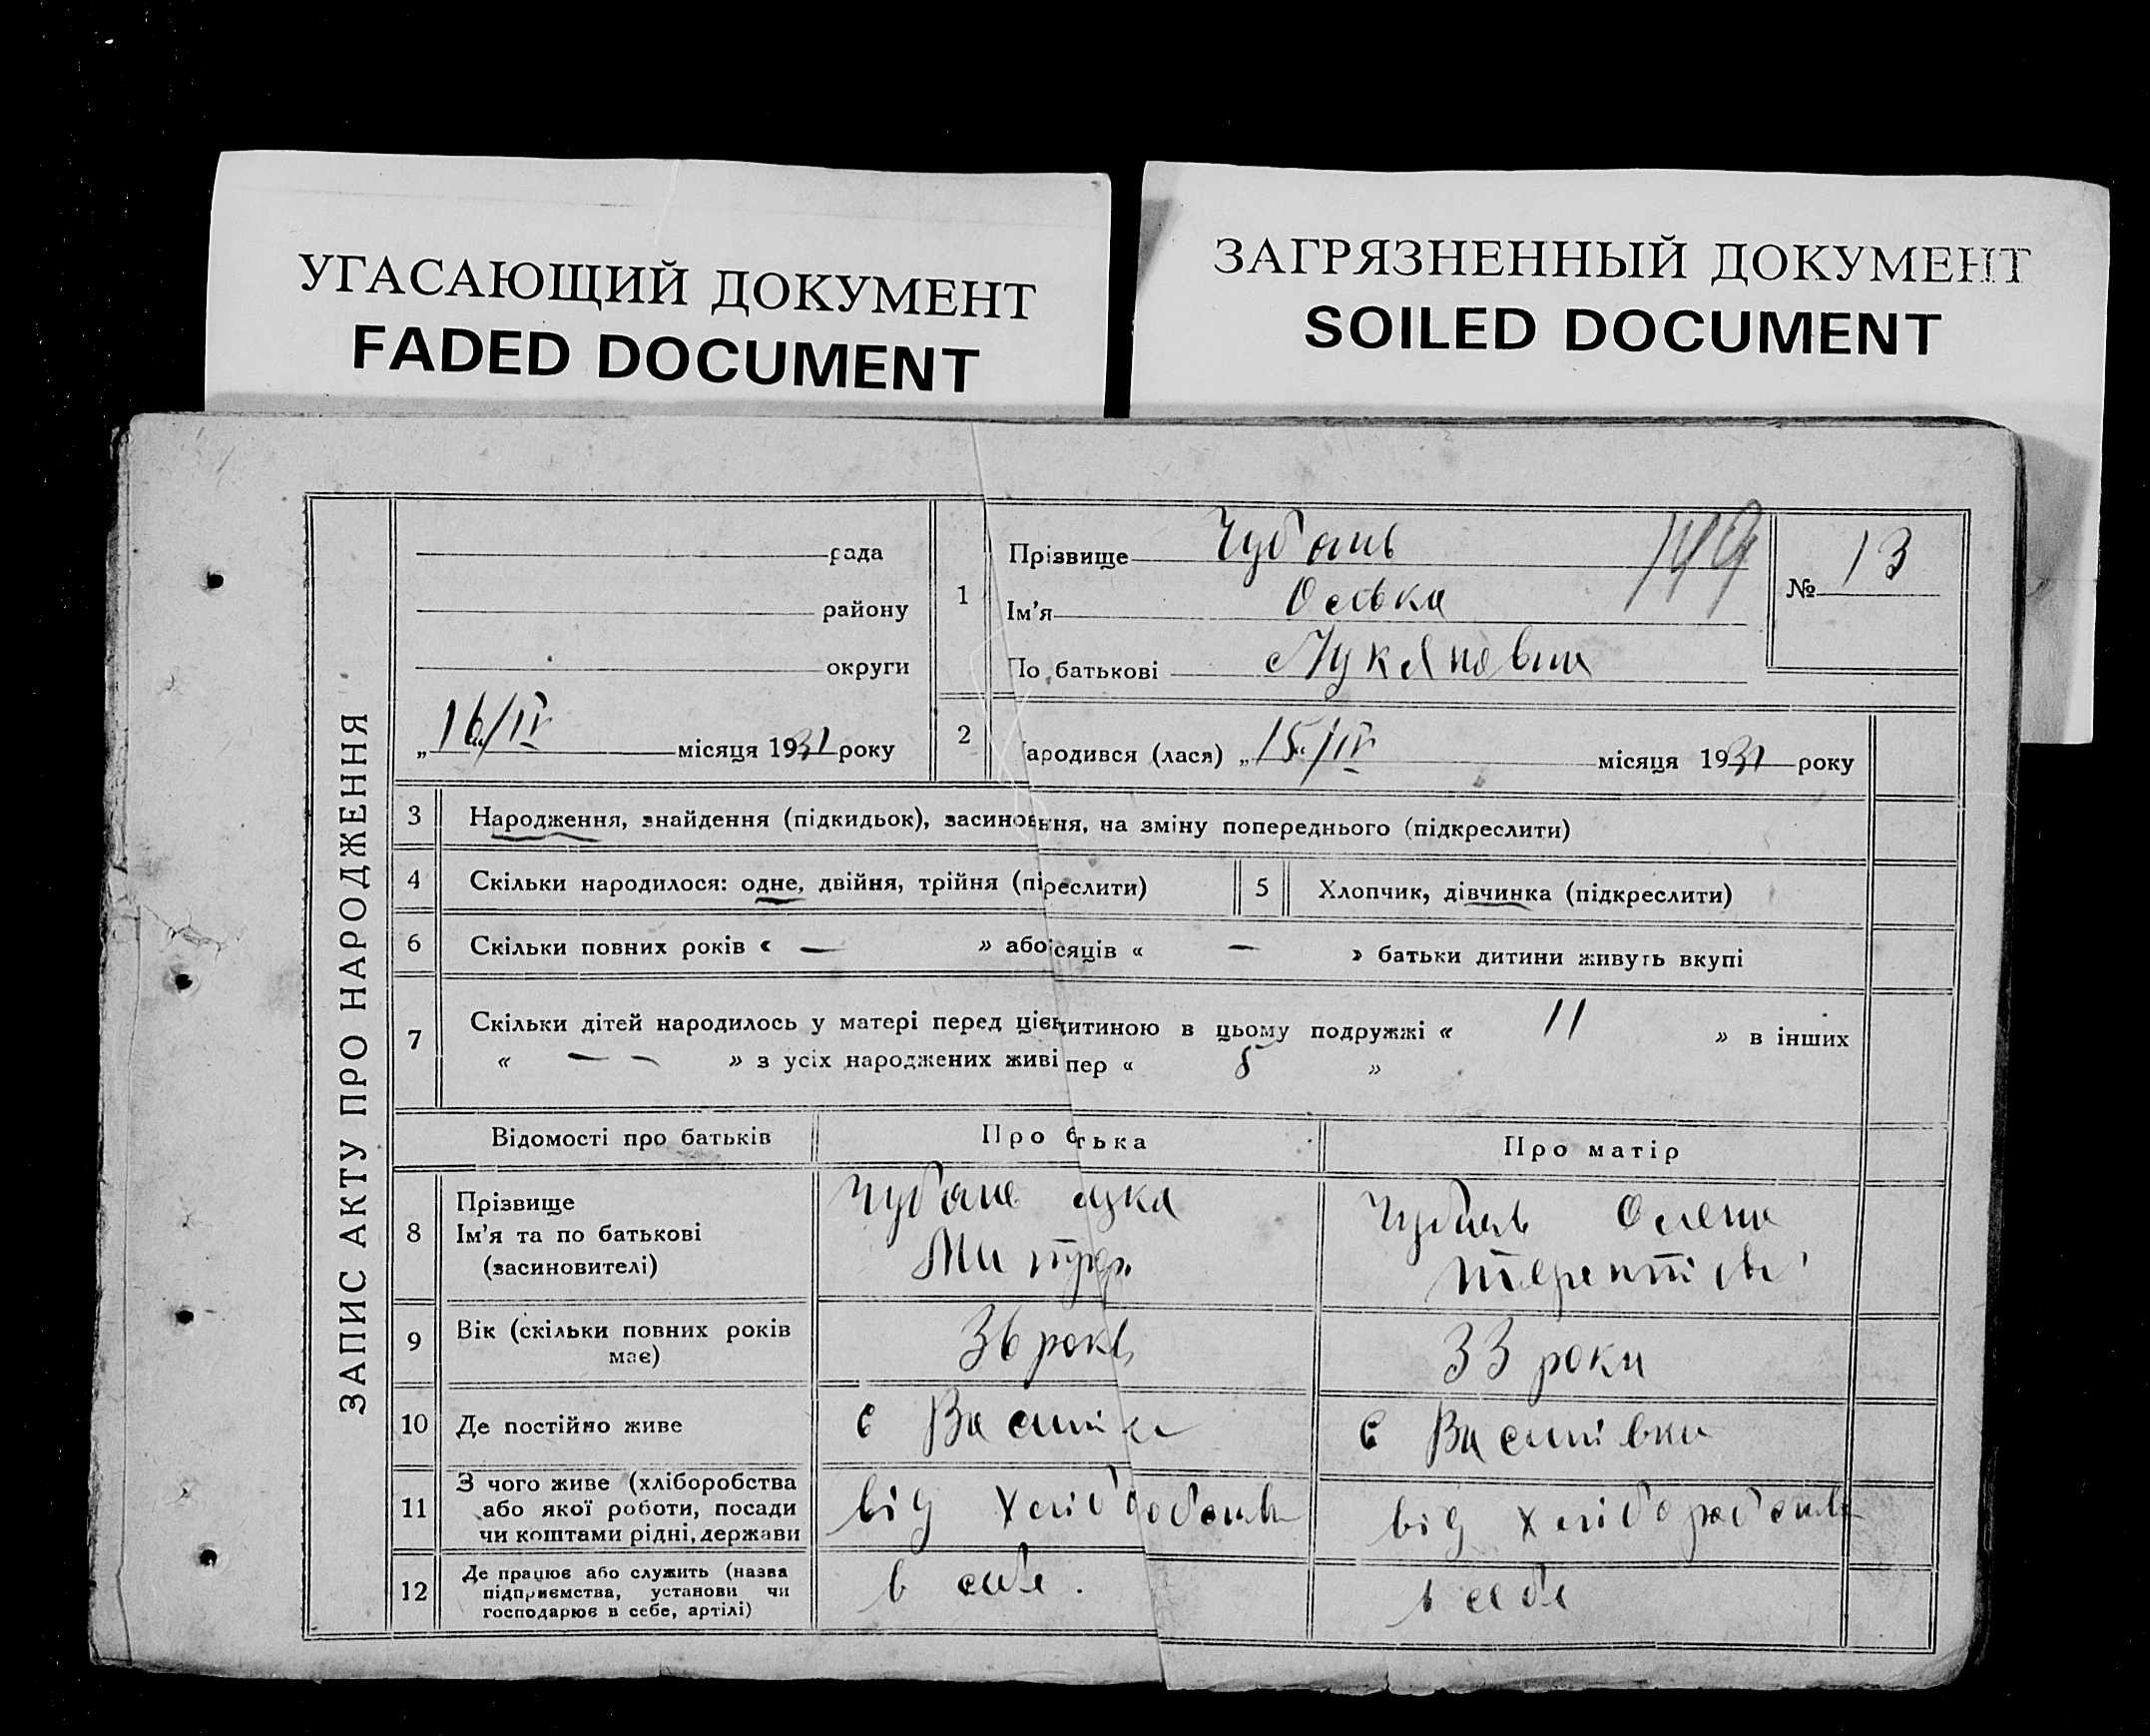 УГАСАЮЩИЙ ДОКУМЕНТ
FADED DOCUMENT
ЗАГРЯЗНЕННЫЙ ДОКУМЕНТ
SOILED DOCUMENT
ЗАПИС АКТУ ПРО НАРОДЖЕННЯ
рада
району
округи
„16“/IV місяця 1931 року
1
Прізвище Чубань
Ім'я
По батькові
149
№ 13
2
ародився (лася) „15“/IV місяця 1931 року
3 Народження, знайдення (підкидьок), засиновння, на зміну попереднього (підкреслити)
4 Скільки народилося: одне, двійня, трійня (піреслити)
5 Хлопчик, дівчинка (підкреслити)
6 Скільки повних років « — » або ісяців « — » батьки дитини живуть вкупі
7 Скільки дітей народилось у матері перед цією дитиною в цьому подружжі « 11 » в інших
« — — » з усіх народжених живі пер « »
Відомості про батьків
Про бтька
Про матір
8 Прізвище
Ім'я та по батькові
(засиновителі)
Чубань
Чубань Олена
9 Вік (скільки повних років
має)
36 років
33 роки
10 Де постійно живе
с
с Василівка
11 З чого живе (хліборобства
або якої роботи, посади
чи коштами рідні, держави
від
від хліборобства
12 Де працює або служить (назва
підприємства, установи чи
господарює в себе, артілі)
в себе.
в себе